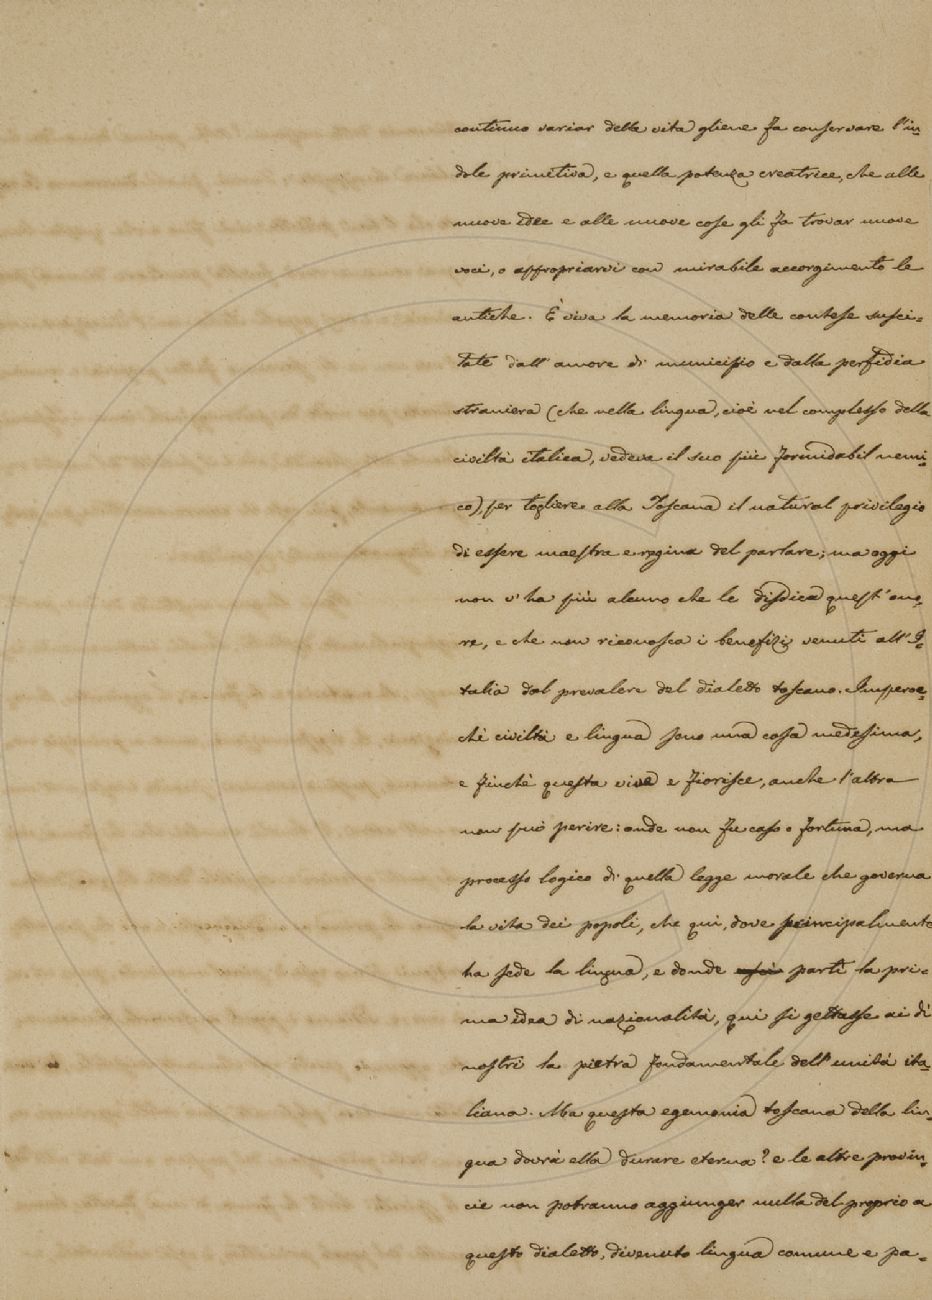 continuo variar della vita gliene fa conservare l'in=
dole primitiva, e quella potenza creatrice, che alle
nuove idee e alle nuove cose gli fa trovar nuove
voci, o appropriarvi con mirabile accorgimento le
antiche. È viva la memoria delle contese susci=
tate dall'amore di municipio e dalla perfidia
straniera (che nella lingua, cioè nel complesso della
civiltà italica, vedeva il suo più formidabil nemi=
co), per togliere alla Toscana il natural privilegio
di essere maestra e regina del parlare; ma oggi
non v'ha più alcuno che le disdica quest'ono=
re, e che non riconosca i benefizi venuti all'I=
talia dal prevalere del dialetto toscano. Imperoc=
chè civiltà e lingua sono una cosa medesima,
e finchè questa vive e fiorisce, anche l'altra
non può perire: onde non fu caso o fortuna, ma
processo logico di quella legge morale che governa
la vita dei popoli, che qui, dove principalmente
ha sede la lingua, e donde partì la pri=
ma idea di nazionalità, qui si gettasse ai dì
nostri la pietra fondamentale dell'unità ita=
liana. Ma questa egemonia toscana della lin=
gua dovrà ella durare eterna? e le altre provin=
cie non potranno aggiunger nulla del proprio a
questo dialetto, divenuto lingua comune e pa=